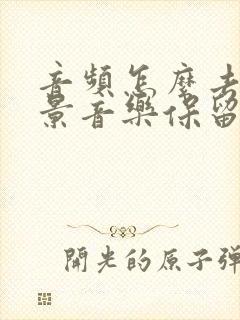 音頻怎麼去
景音樂保留
開光的原子彈